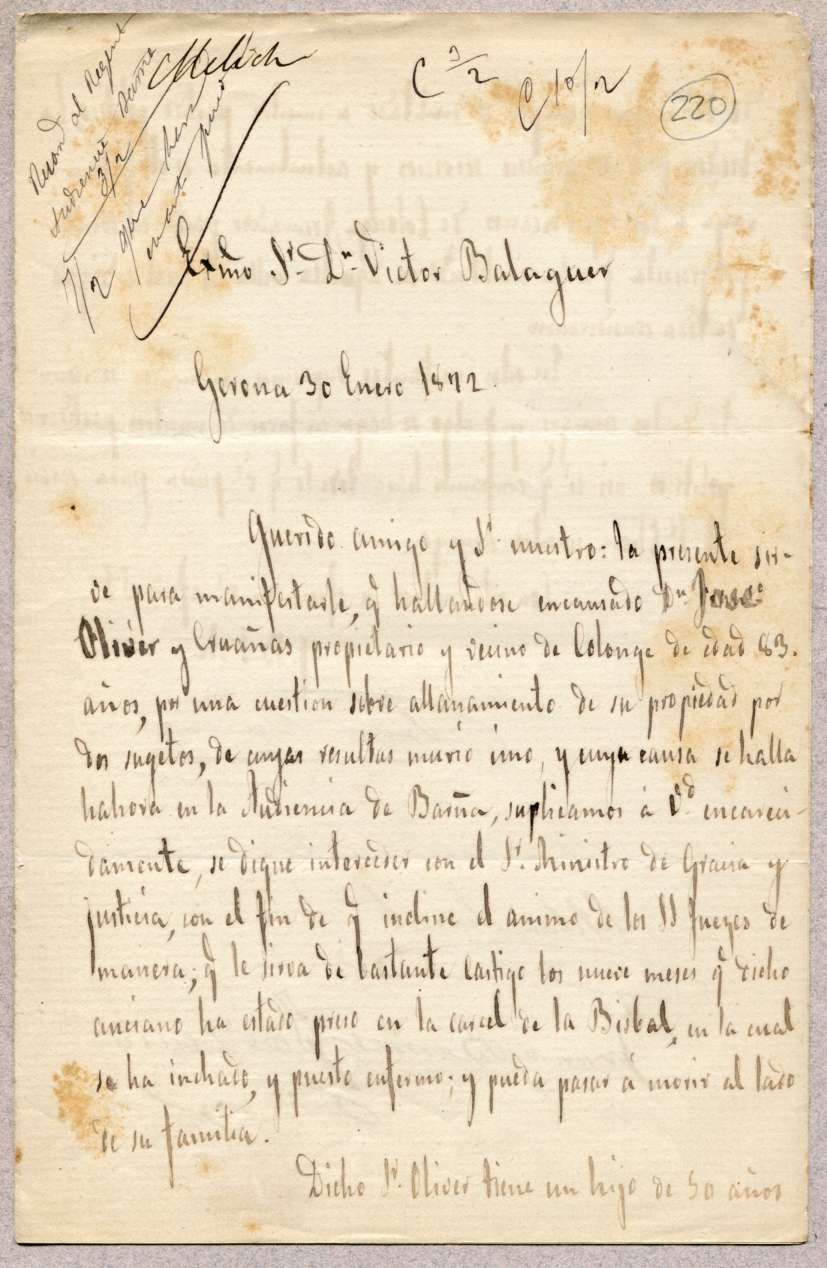 Melich
C 3/2
C 10/2
220
3/2
7/2 que
Exmo Sr. Dn. Victor Balaguer
Gerona 30 Enero 1872.
Querido amigo y Sr. nuestro: la presente sir-
ve para manifestarle, q̃ hallandose encausado Dn José
Oliver y Cruañas propietario y vecino de Calonge de edad 83.
años, por una cuestion sobre allanamiento de su propiedad por
dos sugetos, de cuyas resultas murió uno, y cuya causa se halla
hahora en la Audiencia de Barña, suplicamos á Vd. encareci-
damente, se digne interceder con el Sr. Ministro de Gracia y
justicia, con el fin de q̃ incline el animo de los SS Juezes de
manera; q̃ le sirva de bastante castigo los nueve meses q̃ dicho
anciano ha estado preso en la carcel de la Bisbal, en la cual
se ha inchado, y puesto enfermo; y pueda pasar á morir al lado
de su familia.
Dicho Sr. Oliver tiene un hijo de 50 años